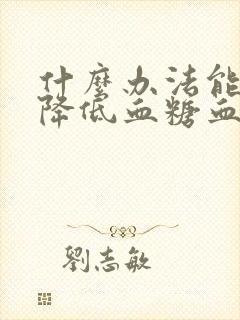 什麼办法能
降低血糖血
劉志敏